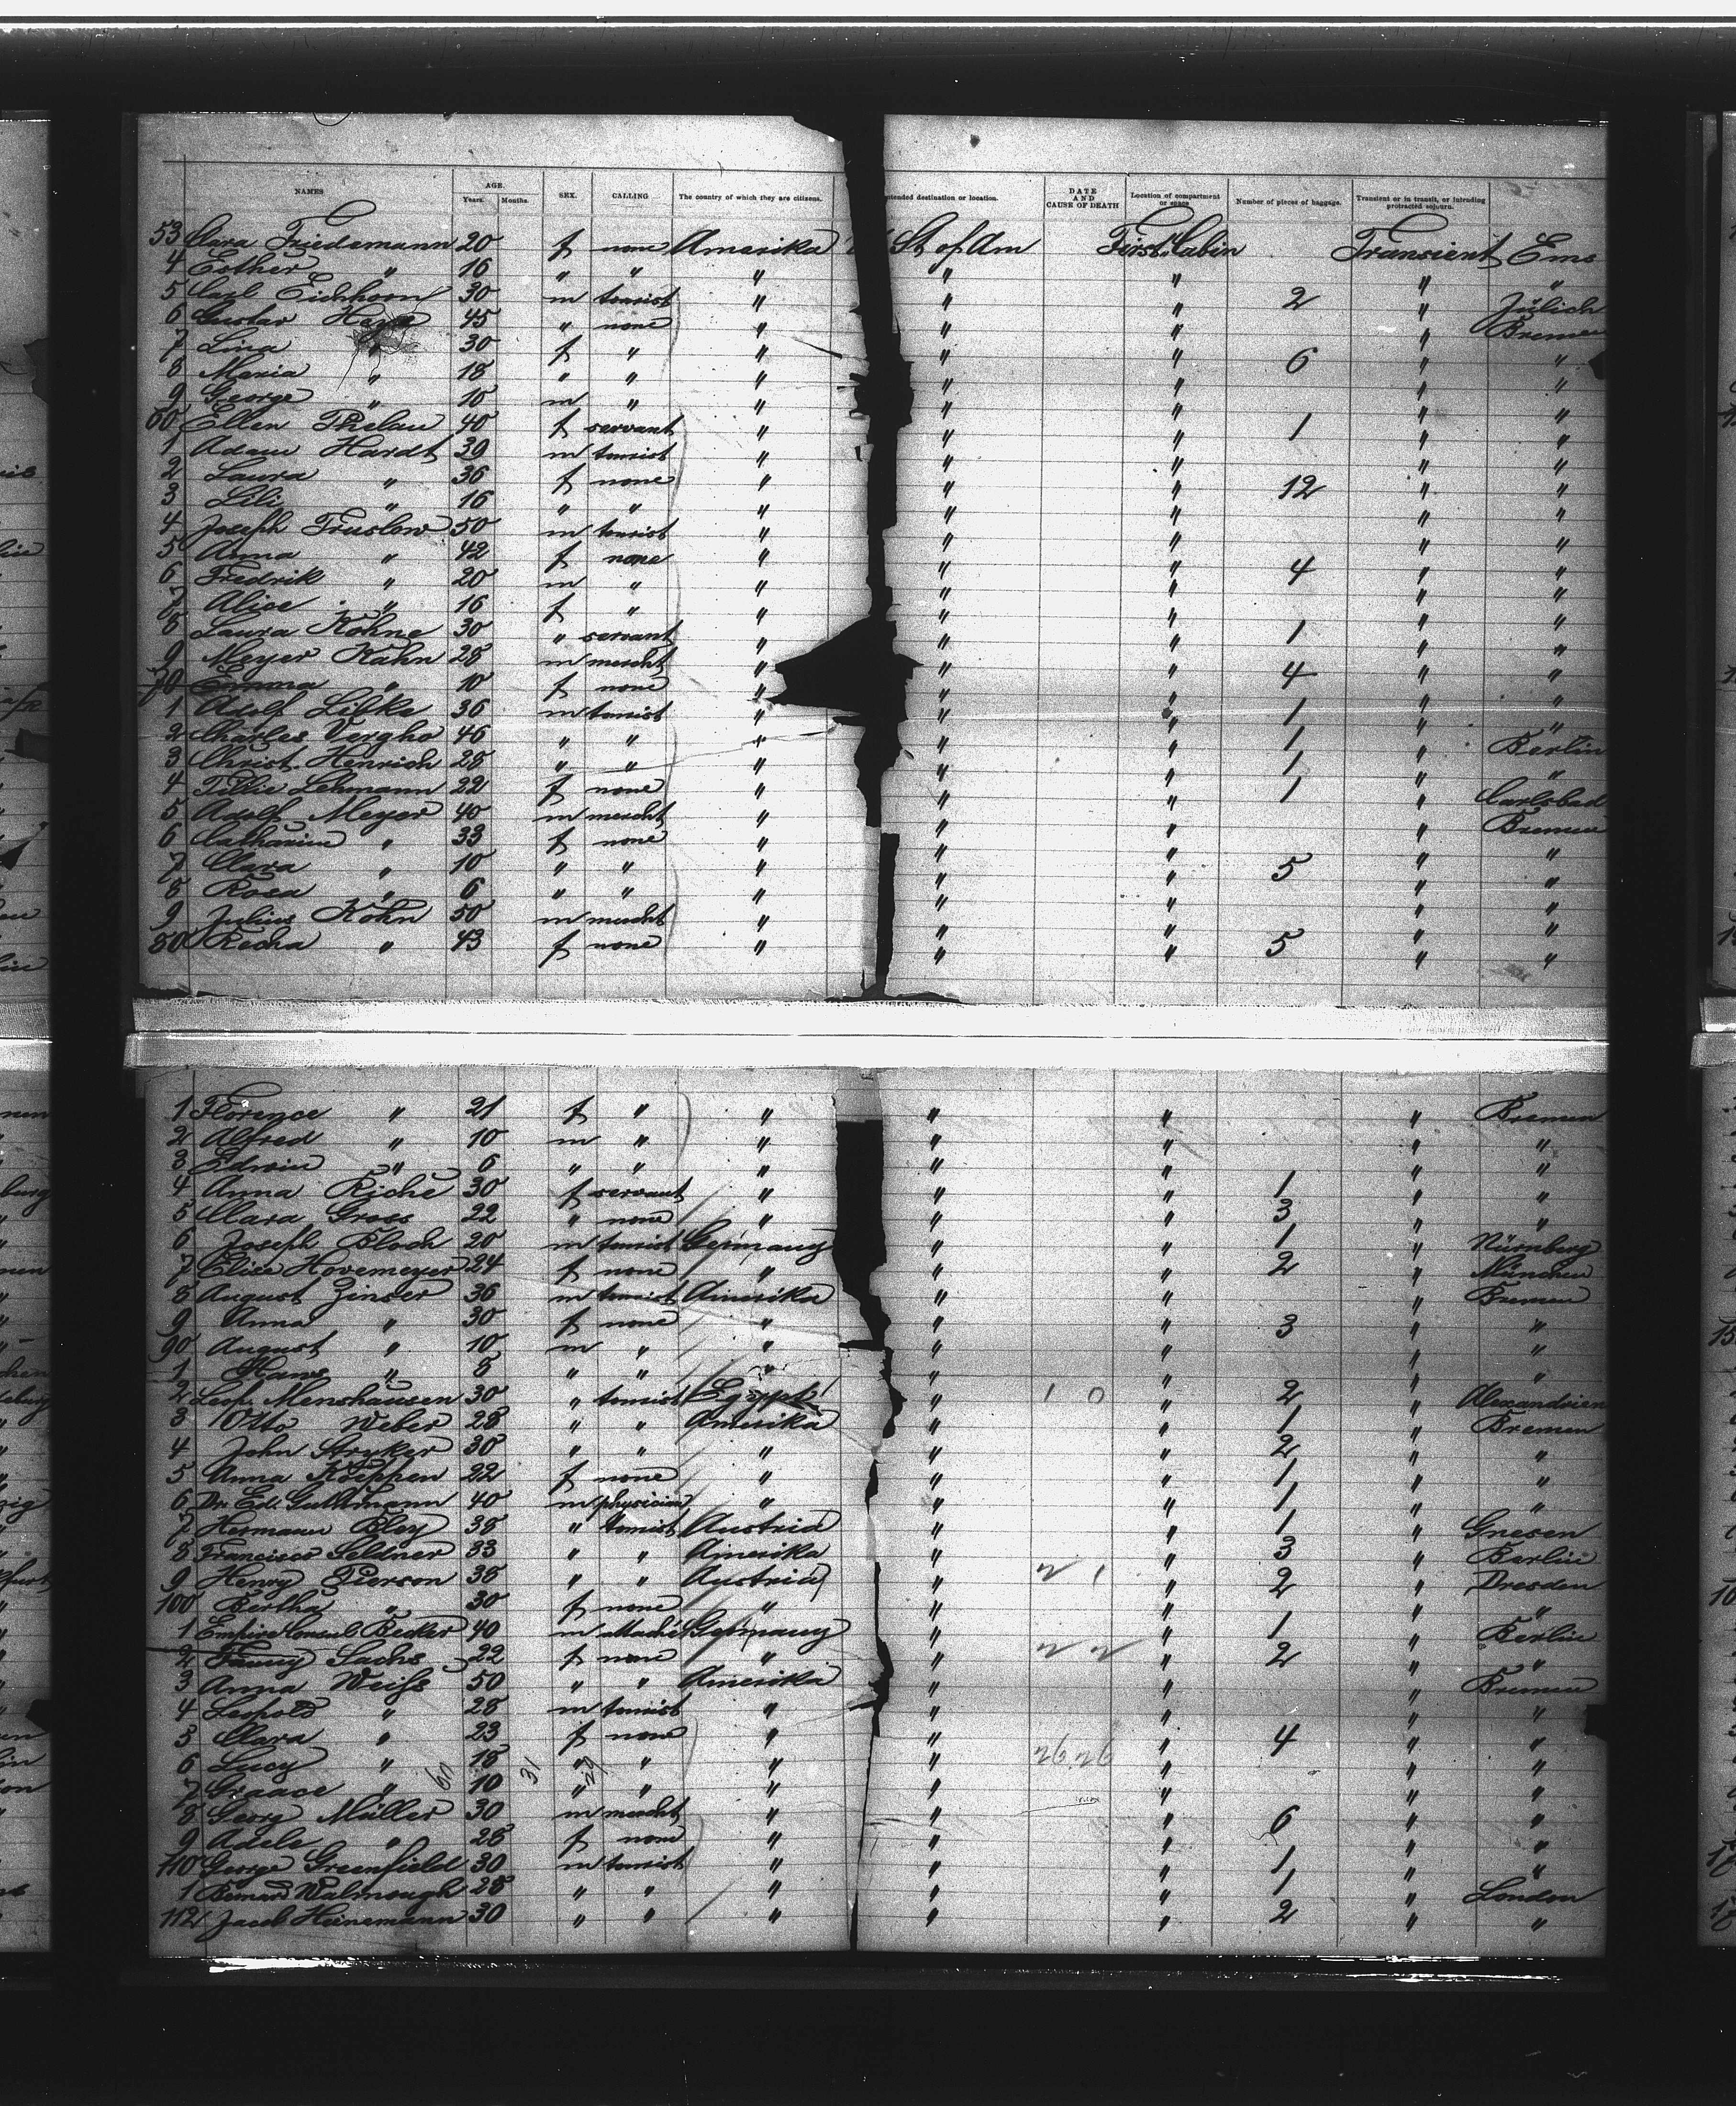 NAMES AGE. Years. Months. SEX. CALLING The country of which they are citizens. ntended destination or location. DATE AND CAUSE OF DEATH Location of compartment or space Number of pieces of baggage. Transient or in transit, or intending protracted sojourn.
53 Clara Friedemann 20 f none Amerika St of Am First Cabin Transient Ems
4 Esther " 16 " " " " " " "
5 Carl Eichhorn 30 m tourist " " " 2 " Jülich
6 Gustav 45 " none " " " " Bremen
7 Lina 30 f " " " " 6 " "
8 Maria " 18 " " " " " " "
9 George " 10 m " " " " " "
60 Ellen Phelan 40 f servant " " " 1 " "
1 Adam Hardt 39 m tourist " " " " "
2 Laura " 36 f none " " " 12 " "
3 Lili " 16 " " " " " " "
4 Joseph Truslow 50 m tourist " " " " "
5 Anna " 42 f none " " " 4 " "
6 Fredrik " 20 m " " " " " "
7 Alice " 16 f " " " " " "
8 Laura Kohne 30 " servant " " " 1 " "
9 Meyer Kahn 28 m mercht " " " 4 " "
70 Emma " 10 f none " " " " "
1 Adolf Lilka 36 m tourist " " " 1 " "
2 Charles Vergho 46 " " " " " 1 " Berlin
3 Christ. Henrich 28 " " " " " 1 " "
4 Tillie Lehmann 22 f none " " " 1 " Carlsbad
5 Adolf Meyer 40 m mercht " " " " Bremen
6 Catharine " 33 f none " " " " "
7 Clara " 10 " " " " " 5 " "
8 Rosa " 6 " " " " " " "
9 Julius Kohn 50 m mercht " " " " "
80 Recha " 43 f none " " " 5 " "
1 Florence " 21 f " " " " " Bremen
2 Alfred " 10 m " " " " " "
3 Edwin " 6 " " " " " " "
4 Anna Riche 30 f servant " " " 1 " "
5 Clara Gross 22 " none " " " 3 " "
6 Joseph Bloch 20 m tourist Germany " " 1 " Nürnberg
7 Elise Hovemeyer 24 f none " " " 2 " München
8 August Zinser 36 m tourist Amerika " " " Bremen
9 Anna " 30 f none " " " 3 " "
90 August " 10 m " " " " " "
1 Hans " 8 " " " " " " "
2 Leop. Menshausen 30 " tourist Egypt " 1 0 " 2 " Alexandrien
3 Otto Weber 28 " " Amerika " " 1 " Bremen
4 John Stryker 30 " " " " " 2 " "
5 Anna Koeppen 22 f none " " " 1 " "
6 Dr. Ed. Guttmann 40 m physician " " " 1 " "
7 Hermann Bley 38 " tourist Austria " " 1 " Gnesen
8 Francisco Geldner 33 " " Amerika " " 3 " Berlin
9 Henry Pierson 38 " " Austria " 2 1 " 2 " Dresden
100 Bertha " 30 f none " " " " "
1 Empire Consul Becker 40 m attaché Germany " " 1 " Berlin
2 Fanny Sachs 22 f none " " 2 2 " 2 " "
3 Anna Weiß 50 " " Amerika " " " Bremen
4 Leopold " 28 m tourist " " " " "
5 Clara " 23 f none " " " 4 " "
6 Lucy " 18 " " " " 26 26 " " "
7 Graace " 10 " " " " " " "
8 Georg Müller 30 m mercht " " " 6 " "
9 Adele " 28 f none " " " " "
110 George Greenfield 30 m tourist " " " 1 " "
1 Bernard Walmough 28 " " " " " 1 " London
112 Jacob Heinemann 30 " " " " " 2 " "